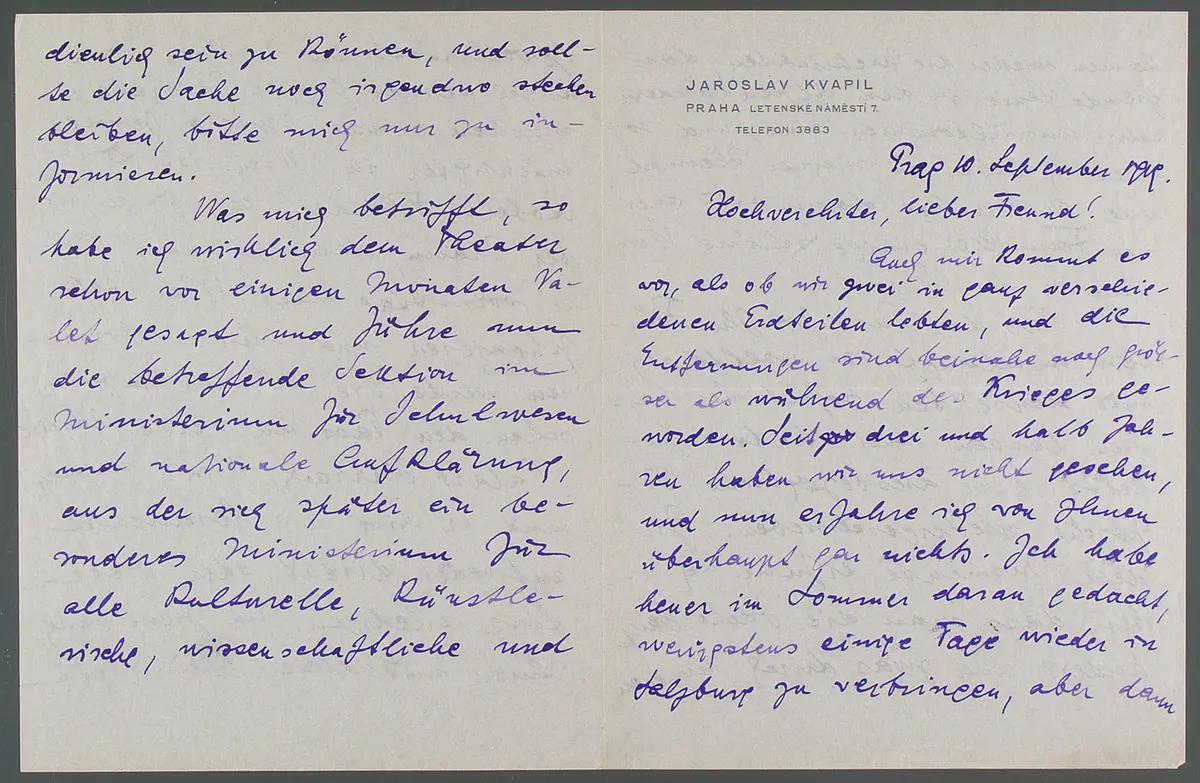 dienlich sein zu können, und soll-
te die Sache noch irgendwo stecken
bleiben, bitte mich nur zu in-
formieren.
Was mich betrifft, so
habe ich wirklich dem Theater
schon vor einigen Monaten Va-
let gesagt und führe nun
die betreffende Sektion im
Ministerium für Schulwesen
und nationale Aufklärung,
aus der sich später ein be-
sonderes Ministerium für
alle Kulturelle, Künstle-
rische, wissenschaftliche und
JAROSLAV KVAPIL
PRAHA LETENSKÉ NÁMĚSTÍ 7.
TELEFON 3883
Prag 10. September 1919.
Hochverehrter, lieber Freund!
Auch mir kommt es
vor, als ob wir zwei in ganz verschie-
denen Erdteilen lebten, und die
Entfernungen sind beinahe noch grös-
ser als während des Krieges ge-
worden. Seit drei und halb Jah-
ren haben wir uns nicht gesehen,
und nun erfahre ich von Ihnen
überhaupt gar nichts. Ich habe
heuer im Sommer daran gedacht,
wenigstens einige Tage wieder in
Salzburg zu verbringen, aber dann